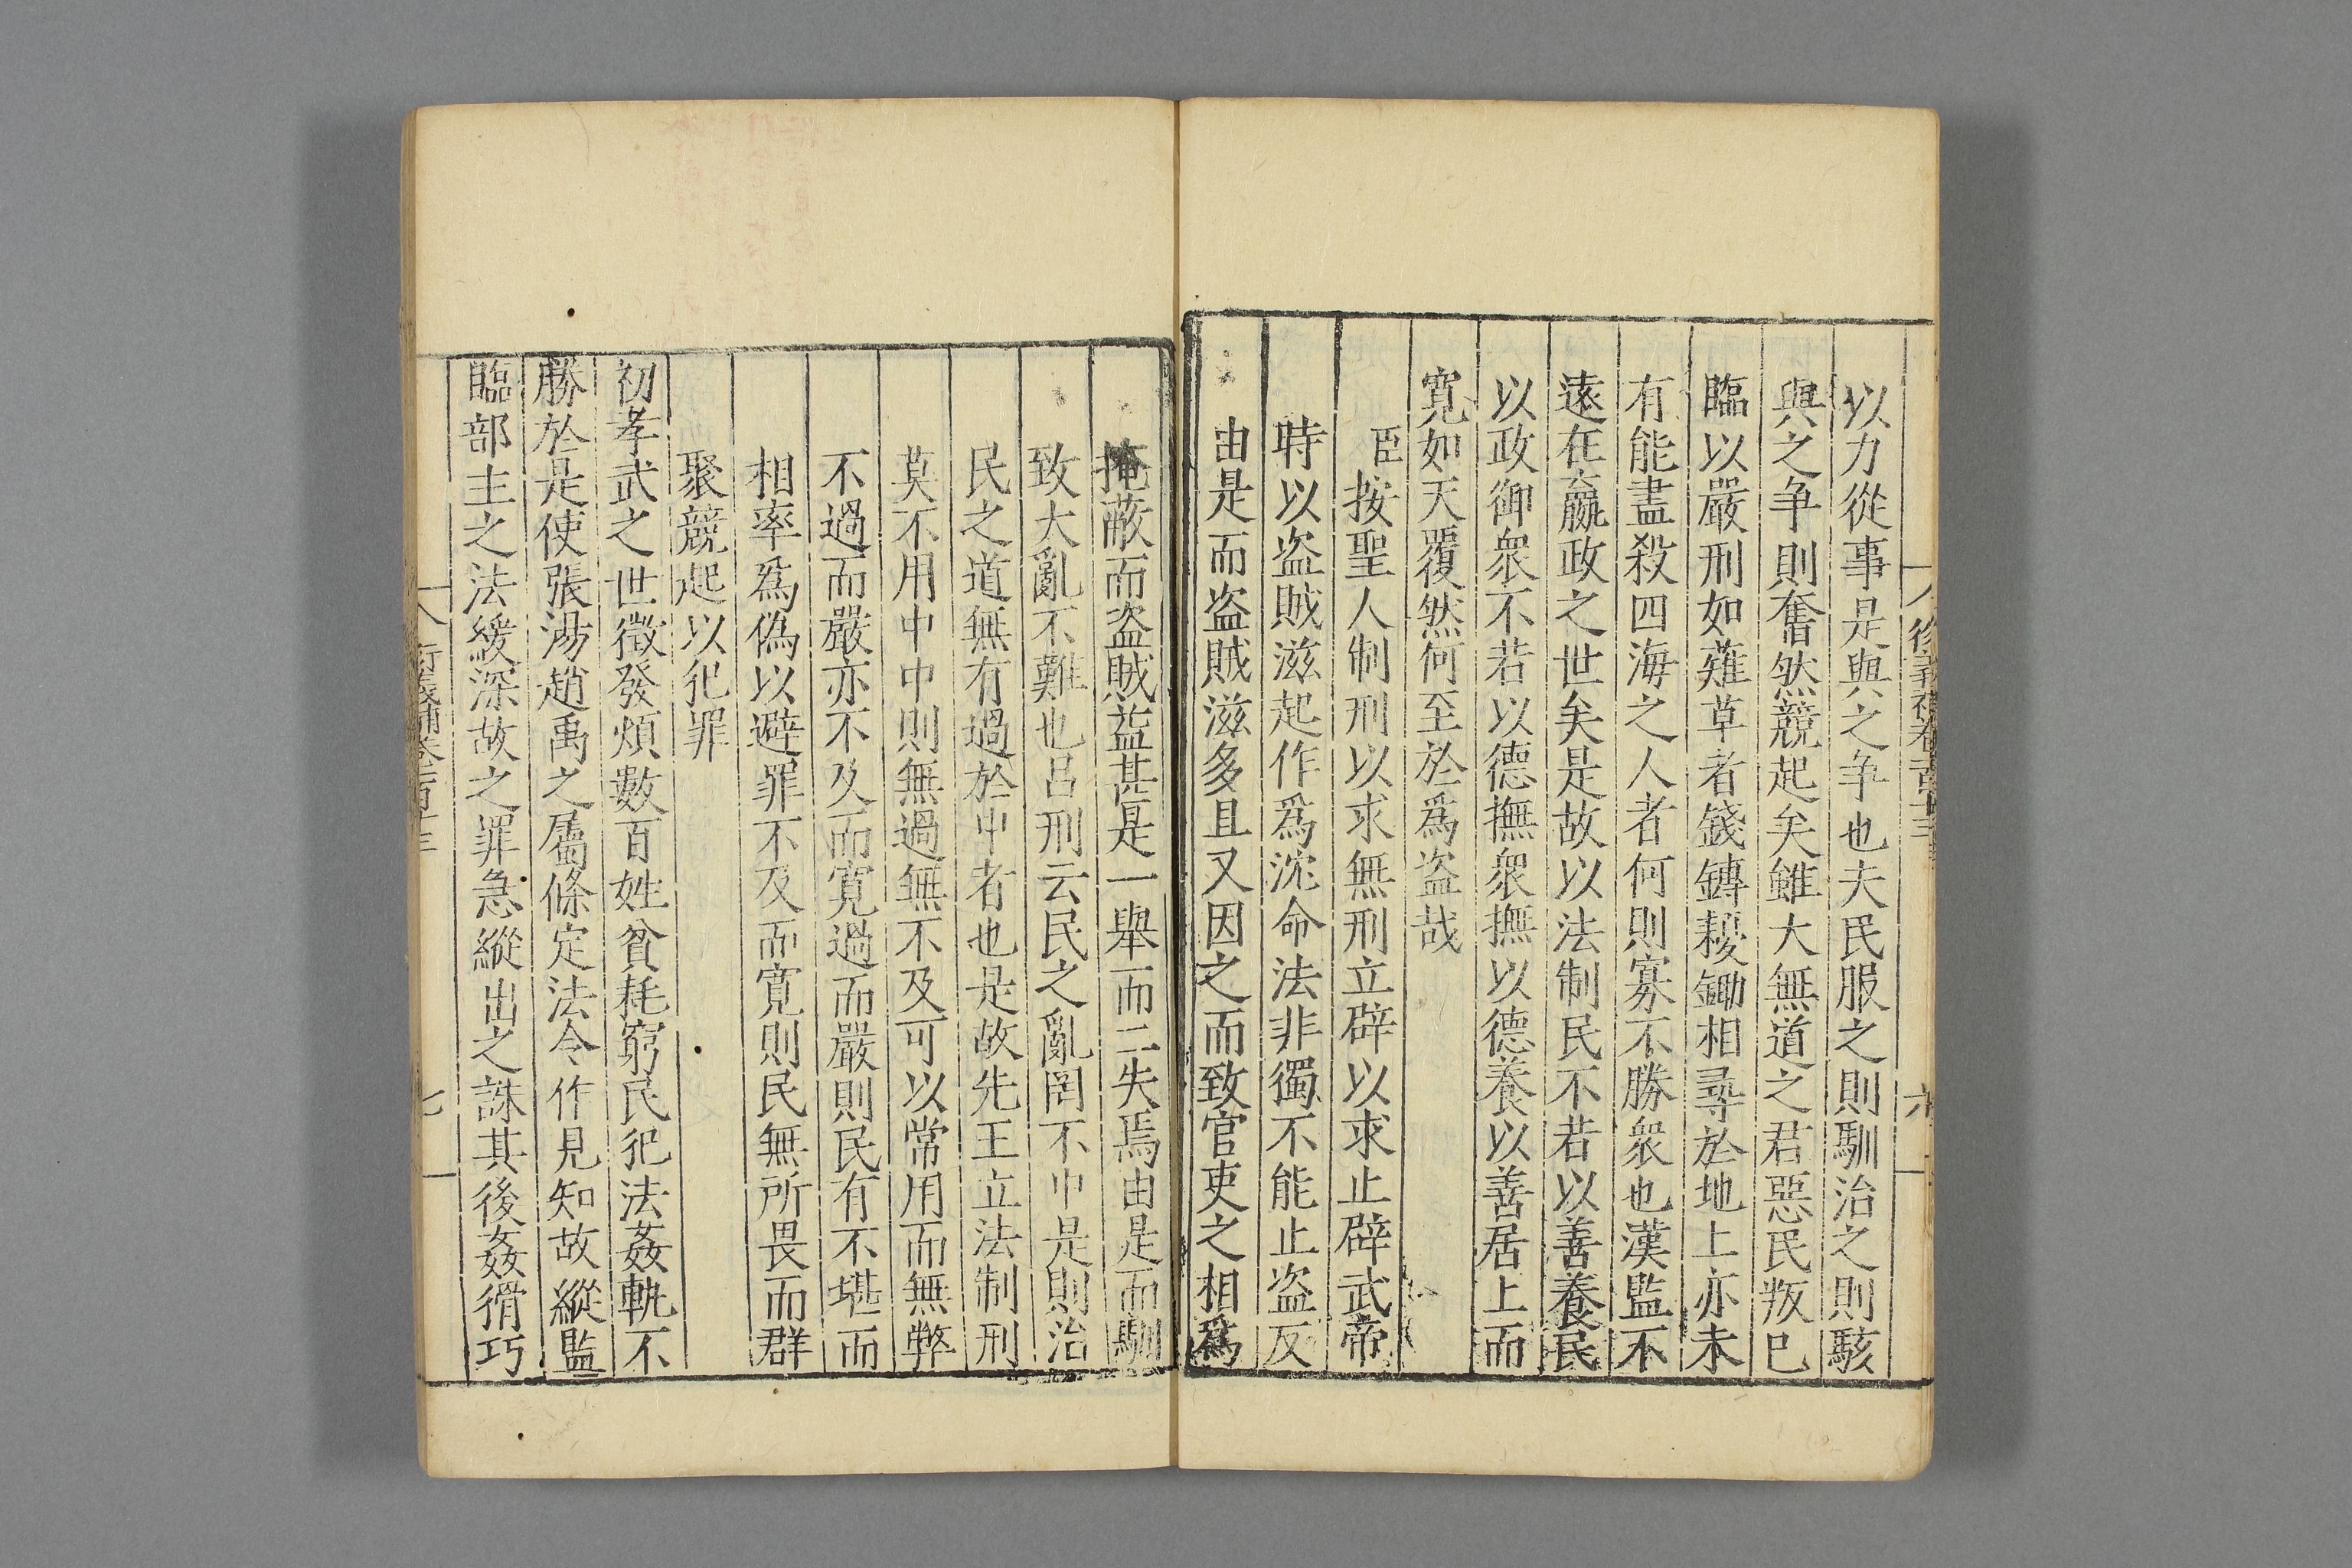 以力從事是與之争也夫民服之則馴治之則駭
與之争則奮然競起矣雖大無道之君惡民叛已
臨以嚴刑如薙草者錢鎛耰鋤相尋於地上亦未
有能盡殺四海之人者何則寡不勝衆也漢監不
遠在嬴政之世矣是故以法制民不若以善養民
以政御衆不若以德撫衆撫以德養以善居上而
寛如天覆然何至於爲盗哉
臣按聖人制刑以求無刑立辟以求止辟武帝
時以盗賊滋起作爲沈命法非獨不能止盗反
由是而盗賊滋多且又因之而致官吏之相爲
掩蔽而盗賊益甚是一舉而二失焉由是而馴
致大亂不難也吕刑云民之亂罔不中是則治
民之道無有過於中者也是故先王立法制刑
莫不用中中則無過無不及可以常用而無弊
不過而嚴亦不及而寛過而嚴則民有不堪而
相率爲偽以避罪不及而寛則民無所畏而群
聚競起以犯罪
初孝武之世徴發煩數百姓貧耗窮民犯法姦軌不
勝於是使張湯趙禹之屬條定法令作見知故縱監
臨部主之法緩深故之罪急縱出之誅其後姦猾巧
六
七